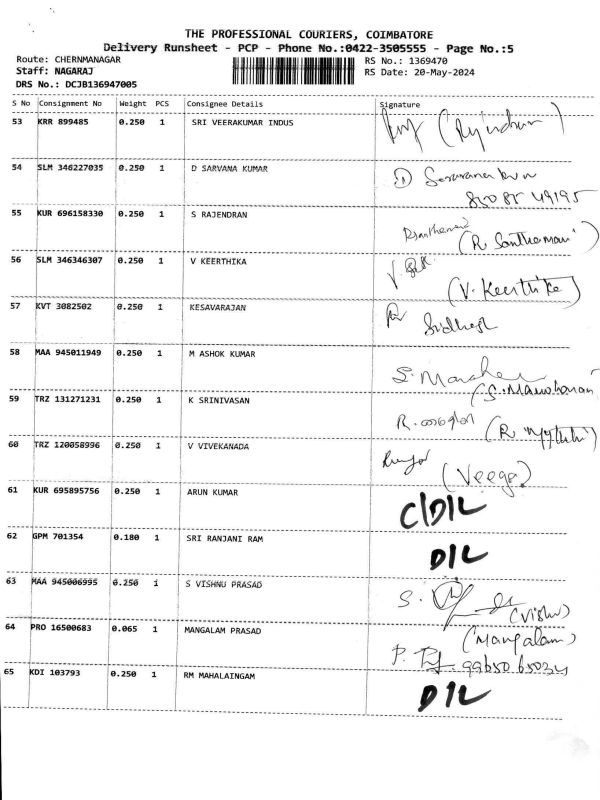 THE PROFESSIONAL COURIERS, COIMBATORE
Delivery Runsheet - PCP - Phone No.:0422-3505555 - Page No.:5
Route: CHERNMANAGAR
RS No.: 1369470
Staff: NAGARAJ
RS Date: 20-May-2024
DRS No.: DCJB136947005
S No Consignment No Weight PCS Consignee Details Signature
53 KRR 899485 0.250 1 SRI VEERAKUMAR INDUS
54 SLM 346227035 0.250 1 D SARVANA KUMAR D
55 KUR 696158330 0.250 1 S RAJENDRAN
(R. Santhamani)
56 SLM 346346307 0.250 1 V KEERTHIKA
(V. Keerthika)
57 KVT 3082502 0.250 1 KESAVARAJAN
58 MAA 945011949 0.250 1 M ASHOK KUMAR
(S. Manoharan)
59 TRZ 131271231 0.250 1 K SRINIVASAN
60 TRZ 120058996 0.250 1 V VIVEKANADA
(Veega)
61 KUR 695895756 0.250 1 ARUN KUMAR C/D/L
62 GPM 701354 0.180 1 SRI RANJANI RAM D/L
63 MAA 945006995 0.250 1 S VISHNU PRASAD S.
(Vishnu)
64 PRO 16500683 0.065 1 MANGALAM PRASAD (Mangalam)
65 KDI 103793 0.250 1 RM MAHALAINGAM D/L